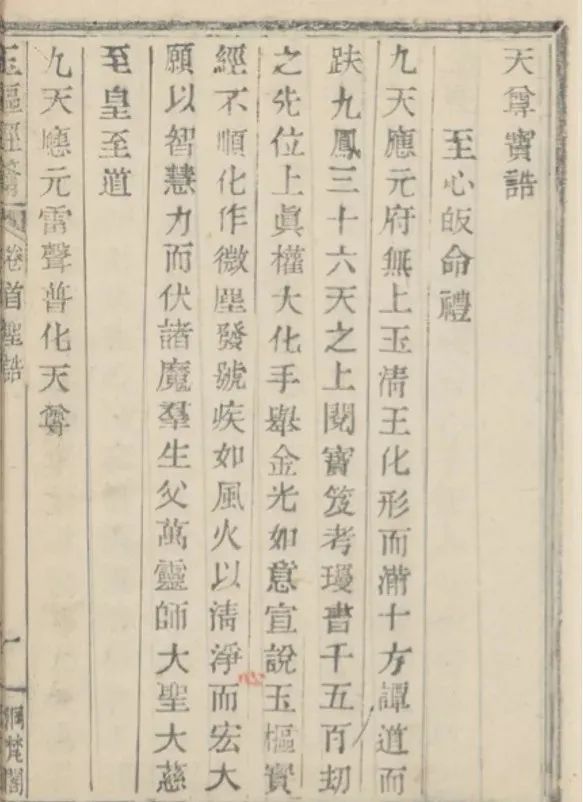 天尊寶誥
至心皈命禮
九天應元府無上玉清王化形而滿十方譚道而
趺九鳳三十六天之上閱寶笈考瓊書千五百劫
之先位上眞權大化手舉金光如意宣說玉樞寶
經不順化作微塵發號疾如風火以清淨心而宏大
願以智慧力而伏諸魔羣生父萬靈師大聖大慈
至皇至道
九天應元雷聲普化天尊
玉樞經籥 卷首聖誥 一 洞梵閣